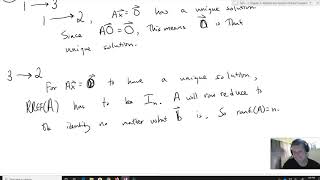 1 → 3 Ax⃗ = 0⃗ has a unique solution
1 → 2, Since A0⃗ = 0⃗, This means 0⃗ is That
unique solution.
3 → 2
For Ax⃗ = 0⃗ to have a unique solution,
RREF(A) has to be Iₙ. A will row reduce to
the identity no matter what b⃗ is, So rank(A)=n.